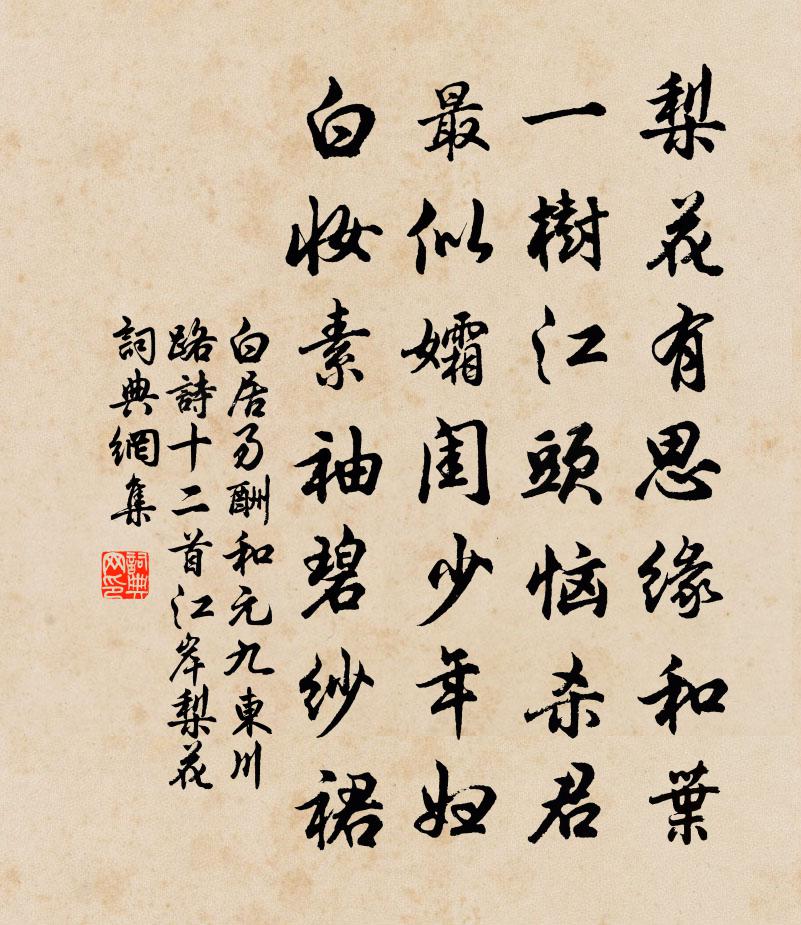 梨花有思缘和葉
一樹江頭恼杀君
最似孀闺少年妇
白妆素袖碧纱裙
白居易酬和元九東川
路詩十二首江岸梨花
詞典網集
詞典
网印